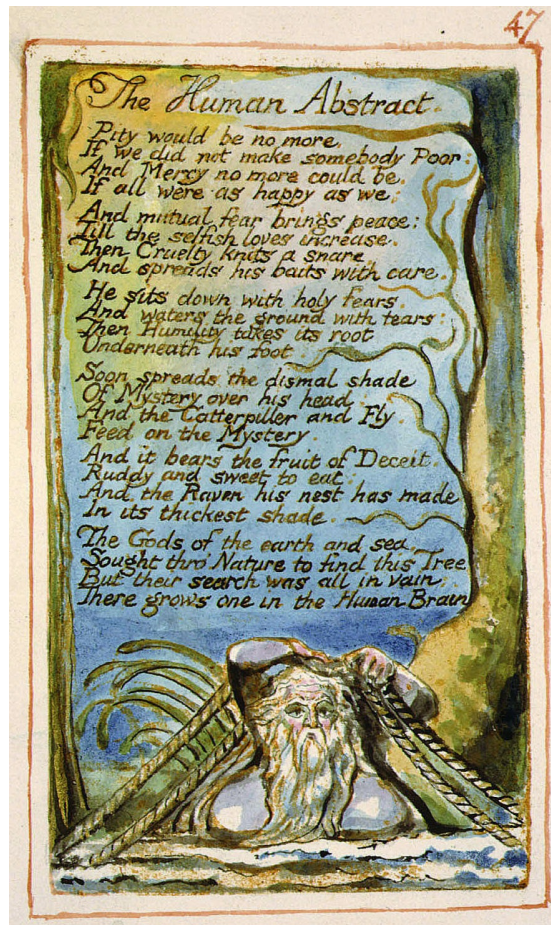 47
The Human Abstract.
Pity would be no more,
If we did not make somebody Poor:
And Mercy no more could be,
If all were as happy as we;
And mutual fear brings peace:
Till the selfish loves increase.
Then Cruelty knits a snare,
And spreads his baits with care.
He sits down with holy fears,
And waters the ground with tears:
Then Humility takes its root
Underneath his foot.
Soon spreads the dismal shade
Of Mystery over his head;
And the Catterpiller and Fly,
Feed on the Mystery.
And it bears the fruit of Deceit,
Ruddy and sweet to eat:
And the Raven his nest has made
In its thickest shade.
The Gods of the earth and sea,
Sought thro Nature to find this Tree
But their search was all in vain:
There grows one in the Human Brain